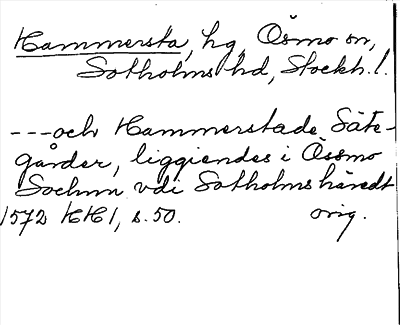 Hammersta, hg, Ösmo sn,
Sotholms hd, Stockh. l.
---och Hammerstade Säte-
gårder, liggiendes i Össmo
Sochnn vdi Sotholms häredt
1572 HH1, s. 50. orig.